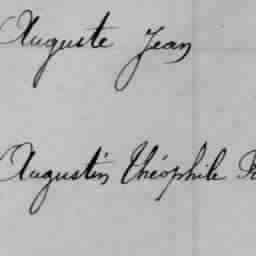 Auguste Jean
Augustin Théophile